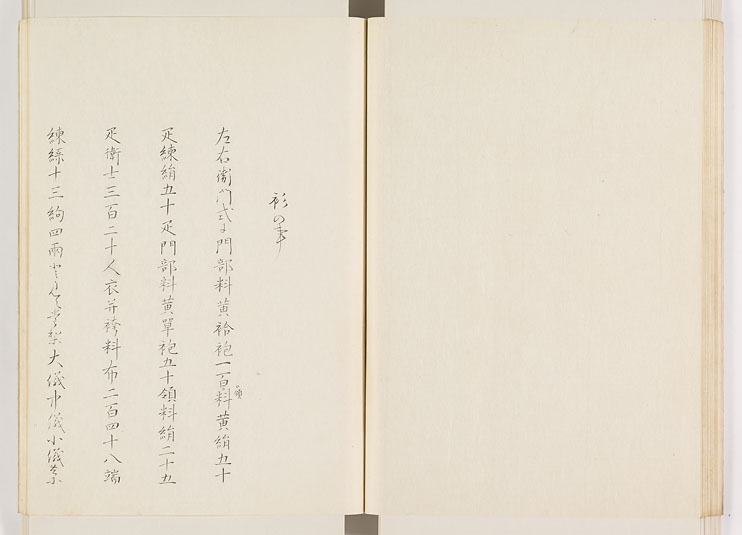 衫の事
左右衛門式に門部料黄袷袍一百領料黄絹五十
疋練絹五十疋門部料黄單袍五十領料絹二十五
疋衛士三百二十人衣并袴料布二百四十八端
練絲十三絇四兩とみえ大儀中儀小儀